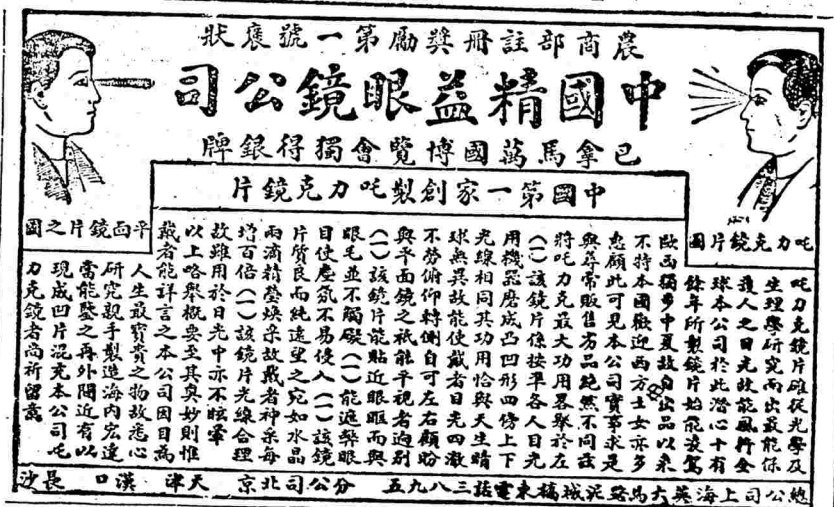 農商部註冊獎勵第一號褒狀
中國精益眼鏡公司
巴拿馬萬國博覽會獨得銀牌
中國第一家創製吒力克鏡片
吒力克鏡片圖
平面鏡片之圖
吒力克鏡片確從光學及
生理學研究而出最能保
護人之目光故能風行全
球本公司於此潛心十有
餘年所製鏡片始能凌駕
歐西獨步中夏故自出品以來
不特本國歡迎西方士女亦多
惠顧此可見本公司實事求是
與尋常販售劣品純然不同茲
將吒力克最大功用畧舉於左
(一)該鏡片係按準各人目光
用機器磨成凸凹形四傍上下
光線相同其功用恰與天生睛
球無異故能使戴者目光四瀲
不勞俯仰轉側自可左右顧盼
與平面鏡之祇能平視者迥別
(一)該鏡片能貼近眼眶而與
眼毛並不觸礙(一)能遮弊眼
目使塵氛不易侵入(一)該鏡
片質良而純遠望之宛如水晶
兩滴精瑩煥采故戴者神采每
增百倍(一)該鏡片光線合理
故雖用於日光中亦不眩暈
以上略舉概要至其奧妙則惟
戴者能詳言之本公司因目為
人生最寶貴之物故悉心
研究親手製造海內宏達
當能鑒之再外間近有以
現成凹片混充本公司吒
力克鏡者尚祈留意
總公司上海英大馬路泥城橋東電話三八九五 分公司北京 天津 漢口 長沙